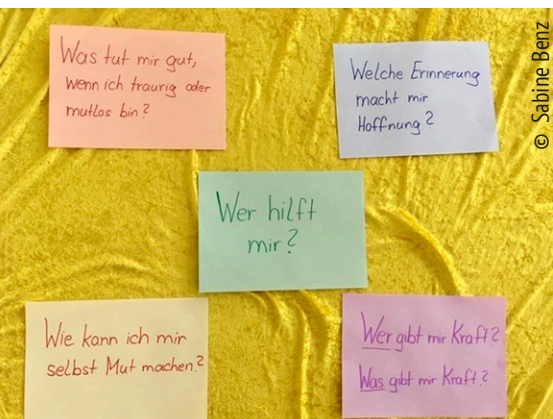 Was tut mir gut,
wenn ich traurig oder
mutlos bin?
Welche Erinnerung
macht mir
Hoffnung?
Wer hilft
mir?
Wie kann ich mir
selbst Mut machen?
Wer gibt mir Kraft?
Was gibt mir Kraft?
© Sabine Benz